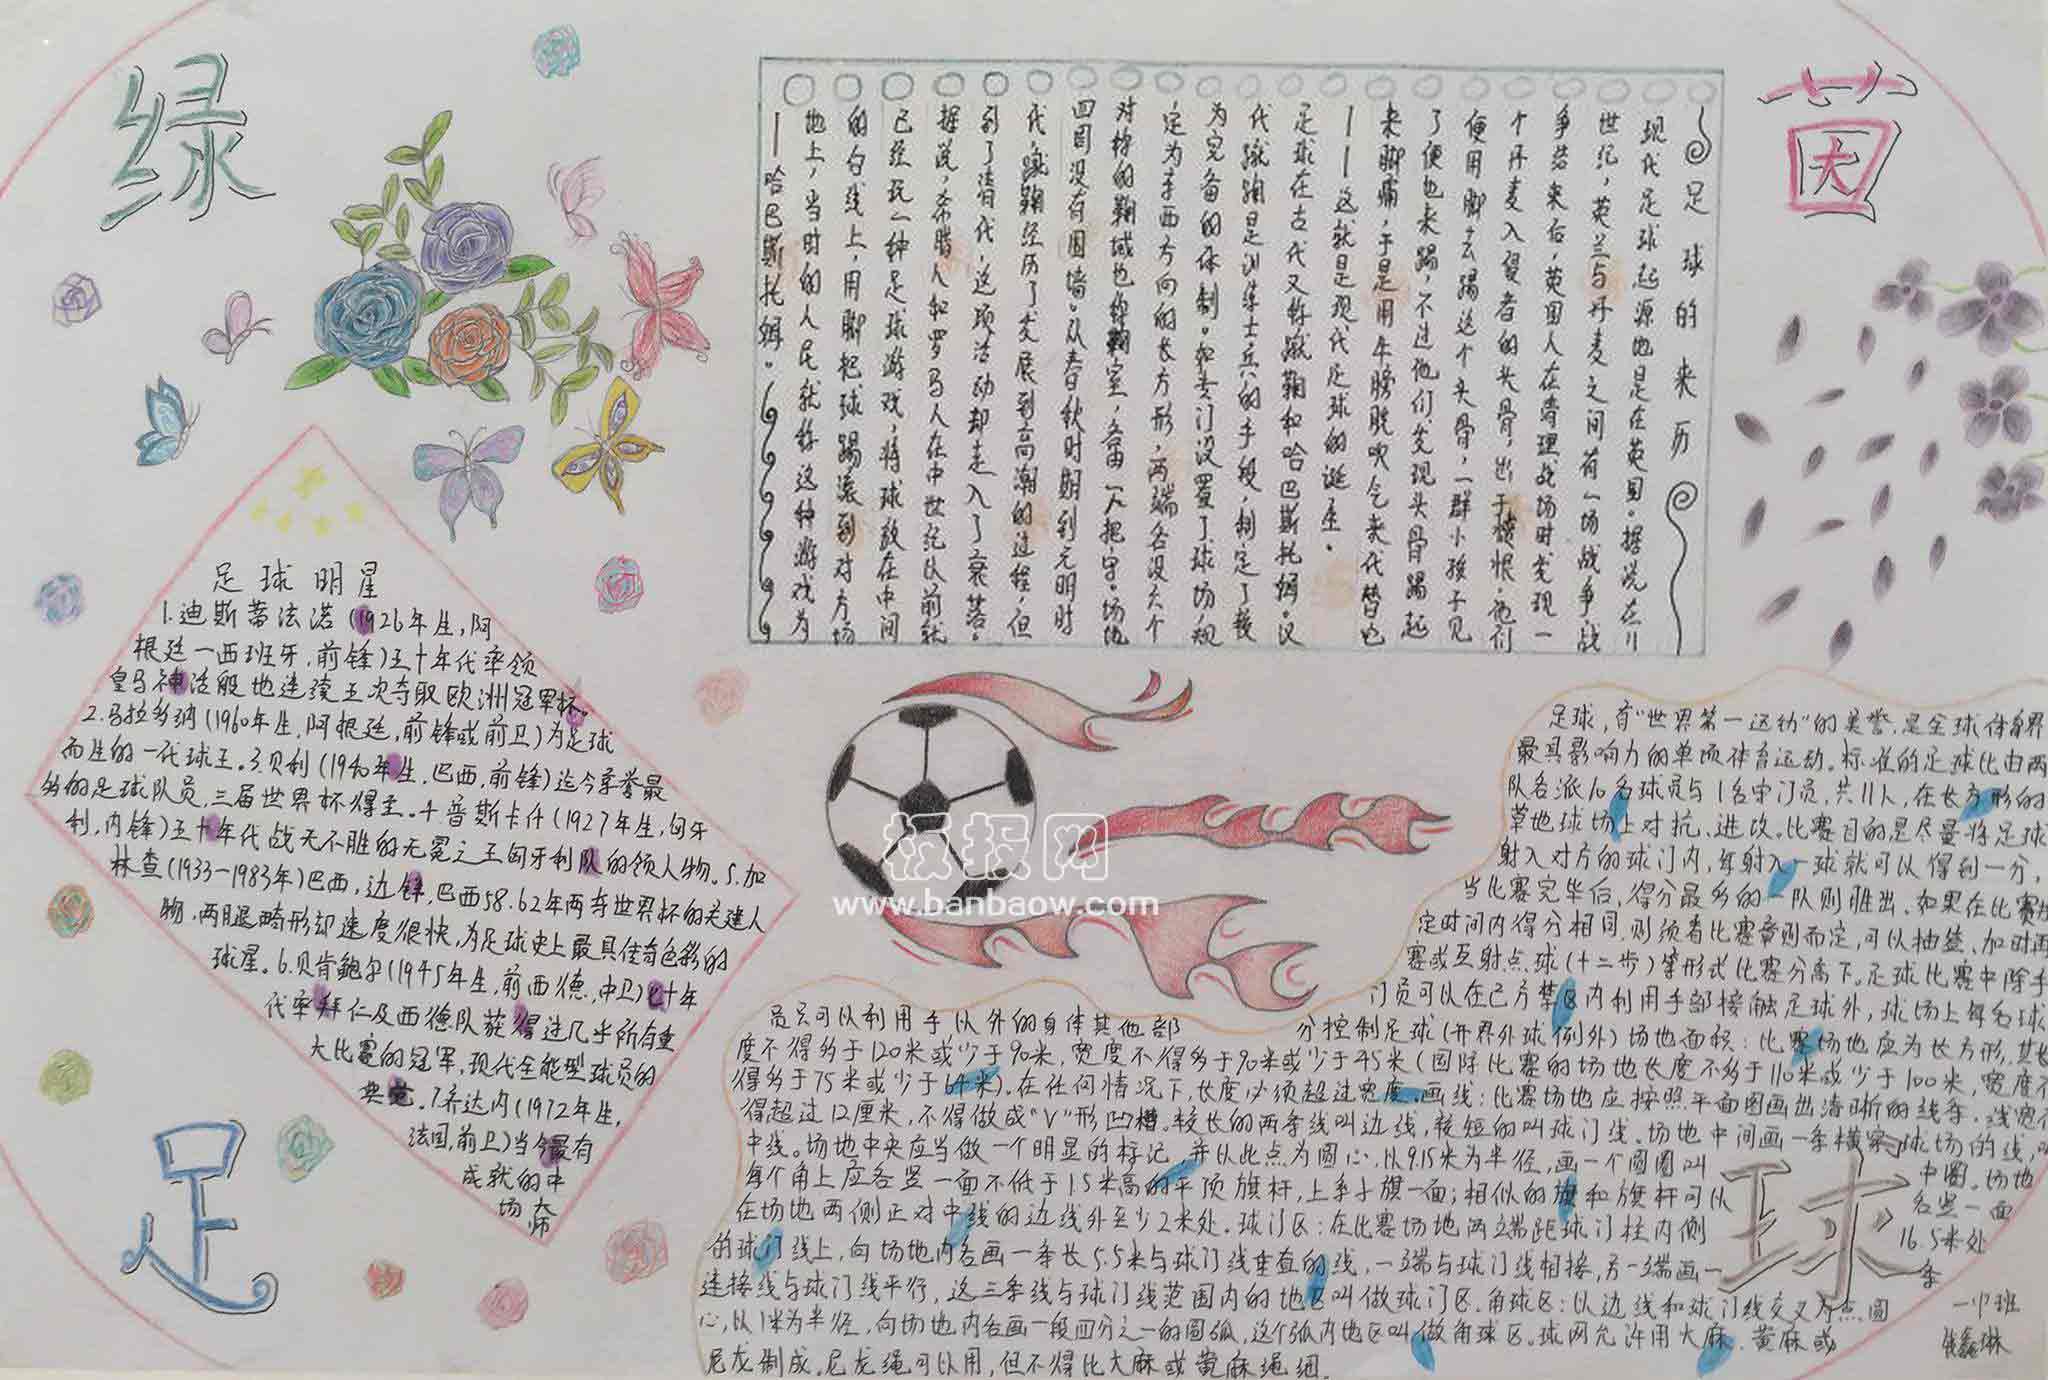 绿
茵
足
球
足球的来历
现代足球起源地是在英国。据说在11
世纪，英兰与丹麦之间有一场战争，战
争结束后，英国人在清理战场时发现一
个丹麦入侵者的头骨，出于愤恨，他们
便用脚去踢这个头骨，一群小孩子见
了便也来踢，不过他们发现头骨踢起
来脚痛，于是用牛膀胱吹气来代替它
——这就是现代足球的诞生。
足球在古代又称蹴鞠和哈巴斯托姆。汉
代蹴鞠是训练士兵的手段，制定了较
为完备的体制。如专门设置了球场，规
定为东西方向的长方形，两端各设六个
对称的鞠域也称鞠室，各由一人把守。场地
四周没有围墙。从春秋时期到元明时
代，蹴鞠经历了发展到高潮的过程，但
到了清代，这项活动却走入了衰落。
据说，希腊人和罗马人在中世纪以前就
已经玩一种足球游戏，将球放在中间
的白线上，用脚把球踢滚到对方场
地上，当时的人民就称这种游戏为
—哈巴斯托姆。
足球明星
1.迪斯蒂法诺(1926年生,阿
根廷—西班牙,前锋)五十年代率领
皇马神话般地连续五次夺取欧洲冠军杯。
2.马拉多纳(1960年生,阿根廷,前锋或前卫)为足球
而生的一代球王。3.贝利(1940年生,巴西,前锋)迄今荣誉最
多的足球队员,三届世界杯得主。4.普斯卡什(1927年生,匈牙
利,内锋)五十年代战无不胜的无冕之王匈牙利队的领人物。5.加
林查(1933—1983年)巴西,边锋,巴西58.62年两夺世界杯的关建人
物,两腿畸形却速度很快,为足球史上最具传奇色彩的
球星。6.贝肯鲍尔(1945年生,前西德,中卫)七十年
代率拜仁及西德队获得过几乎所有重
大比赛的冠军,现代全能型球员的
典范。7.齐达内(1972年生,
法国,前卫)当今最有
成就的中
场大师
足球,有“世界第一运动”的美誉,是全球体育界
最具影响力的单项体育运动。标准的足球比由两
队各派10名球员与1名守门员,共11人,在长方形的
草地球场上对抗、进攻。比赛目的是尽量将足球
射入对方的球门内,每射入一球就可以得到一分,
当比赛完毕后,得分最多的一队则胜出。如果在比赛规
定时间内得分相同,则须看比赛章则而定,可以抽签、加时再
赛或互射点球(十二步)等形式比赛分高下。足球比赛中除手
门员可以在己方禁区内利用手部接触足球外,球场上每名球
员只可以利用手以外的身体其他部分控制足球(开界外球例外)场地面积：比赛场地应为长方形,其长
度不得多于120米或少于90米,宽度不得多于90米或少于45米(国际比赛的场地长度不多于110米或少于100米,宽度不
得多于75米或少于64米)。在任何情况下,长度必须超过宽度。画线：比赛场地应按照平面图画出清晰的线条,线宽不
得超过12厘米,不得做成“V”形凹槽。较长的两条线叫边线,较短的叫球门线。场地中间画一条横穿球场的线,叫
中线。场地中央应当做一个明显的标记,并以此点为圆心,以9.15米为半径,画一个圆圈叫中圈。场地
每个角上应各竖一面不低于1.5米高的平顶旗杆,上系小旗一面；相似的旗和旗杆可以各竖一面
在场地两侧正对中线的边线外至少2米处。球门区：在比赛场地两端距球门柱内侧16.5米处
的球门线上,向场地内各画一条长5.5米与球门线垂直的线,一端与球门线相接,另一端画一条
连接线与球门线平行,这三条线与球门线范围内的地区叫做球门区。角球区：以边线和球门线交叉为点圆
心,以1米为半径,向场地内各画一段四分之一的圆弧,这个弧内地区叫做角球区。球网允许用大麻、黄麻或
尼龙制成。尼龙绳可以用,但不得比大麻或黄麻绳细。
板报网
www.banbaow.com